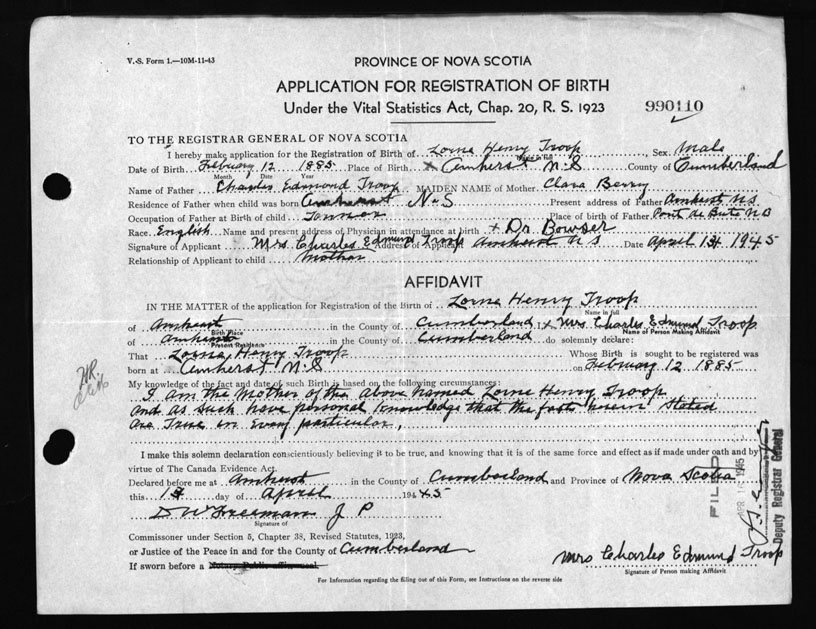 V.-S. Form 1.—10M-11-43
PROVINCE OF NOVA SCOTIA
APPLICATION FOR REGISTRATION OF BIRTH
Under the Vital Statistics Act, Chap. 20, R. S. 1923
990110
TO THE REGISTRAR GENERAL OF NOVA SCOTIA
I hereby make application for the Registration of Birth of Lorne Henry Troop Sex Male
Name in full
Date of Birth February 12 1885 Place of Birth x Amherst N.S County of Cumberland
Month Date Year
Name of Father Charles Edmond Troop MAIDEN NAME of Mother Clara Berry
Residence of Father when child was born Amherst N.S Present address of Father Amherst N.S
Occupation of Father at Birth of child Tanner Place of birth of Father Pont de Bute N B
Race English Name and present address of Physician in attendance at birth x Dr Bowser
Signature of Applicant Mrs Charles Edmund Troop Address of Applicant Amherst N S Date April 1945
Relationship of Applicant to child Mother
AFFIDAVIT
IN THE MATTER of the application for Registration of the Birth of Lorne Henry Troop
Name in full
of Amherst in the County of Cumberland I, x Mrs Charles Edmund Troop
Birth Place Name of Person Making Affidavit
of Amherst in the County of Cumberland do solemnly declare:
Present Residence
That Lorne Henry Troop Whose Birth is sought to be registered was
born at Amherst N.S on February 12 1885
My knowledge of the fact and date of such Birth is based on the following circumstances:
I am the Mother of the above named Lorne Henry Troop
and as such have personal knowledge that the facts herein stated
are true in every particular.
I make this solemn declaration conscientiously believing it to be true, and knowing that it is of the same force and effect as if made under oath and by
virtue of The Canada Evidence Act.
Declared before me at Amherst in the County of Cumberland and Province of Nova Scotia
this day of April 1945
D W Freeman J P
Signature of
Commissioner under Section 5, Chapter 38, Revised Statutes, 1923,
or Justice of the Peace in and for the County of Cumberland
If sworn before a Notary Public affix seal
Mrs Charles Edmund Troop
Signature of Person making Affidavit
For Information regarding the filling out of this Form, see Instructions on the reverse side
FILED
1945
Deputy Registrar General